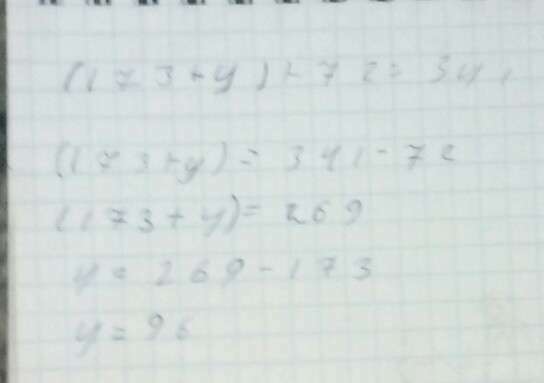 (173+y)+72=341
(173+y)=341-72
(173+y)=269
y=269-173
y=96